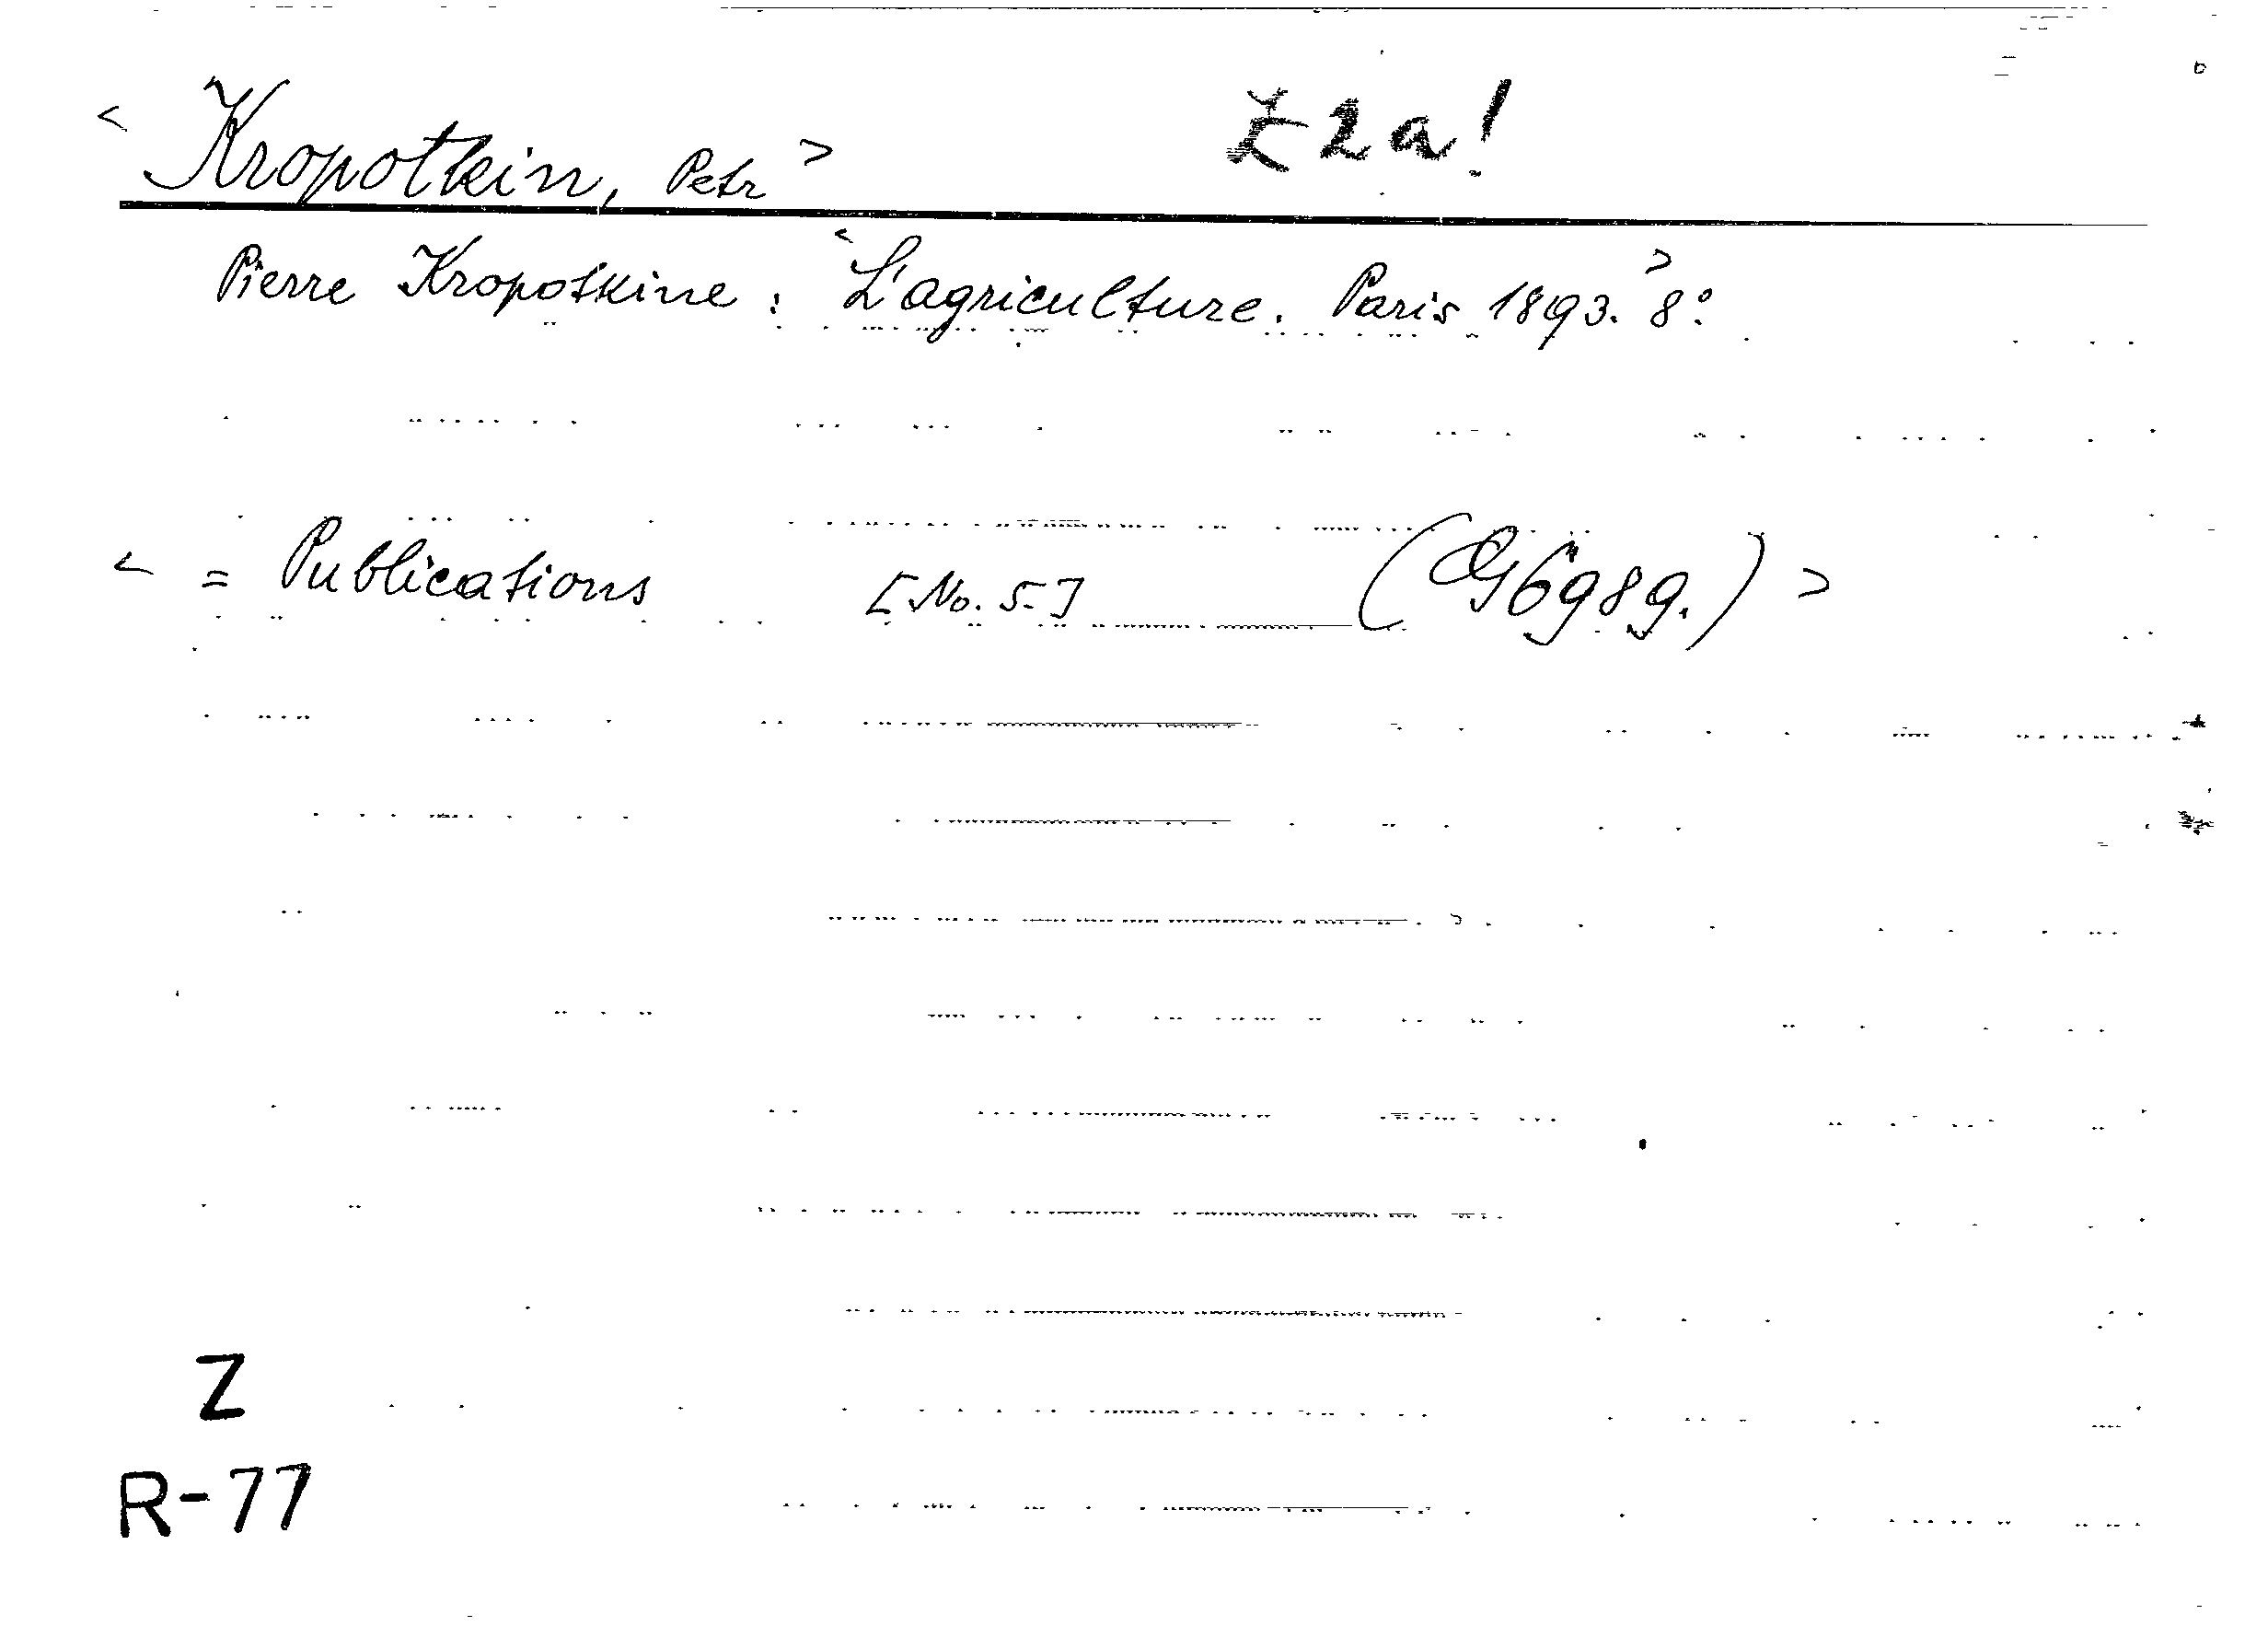 < Kropotkin, Petr > Z 2 a!
Pierre Kropotkine: <L'agriculture. Paris 1893.> 8°
< = Publications [No. 5.] (G 6989.) >
Z
R-77